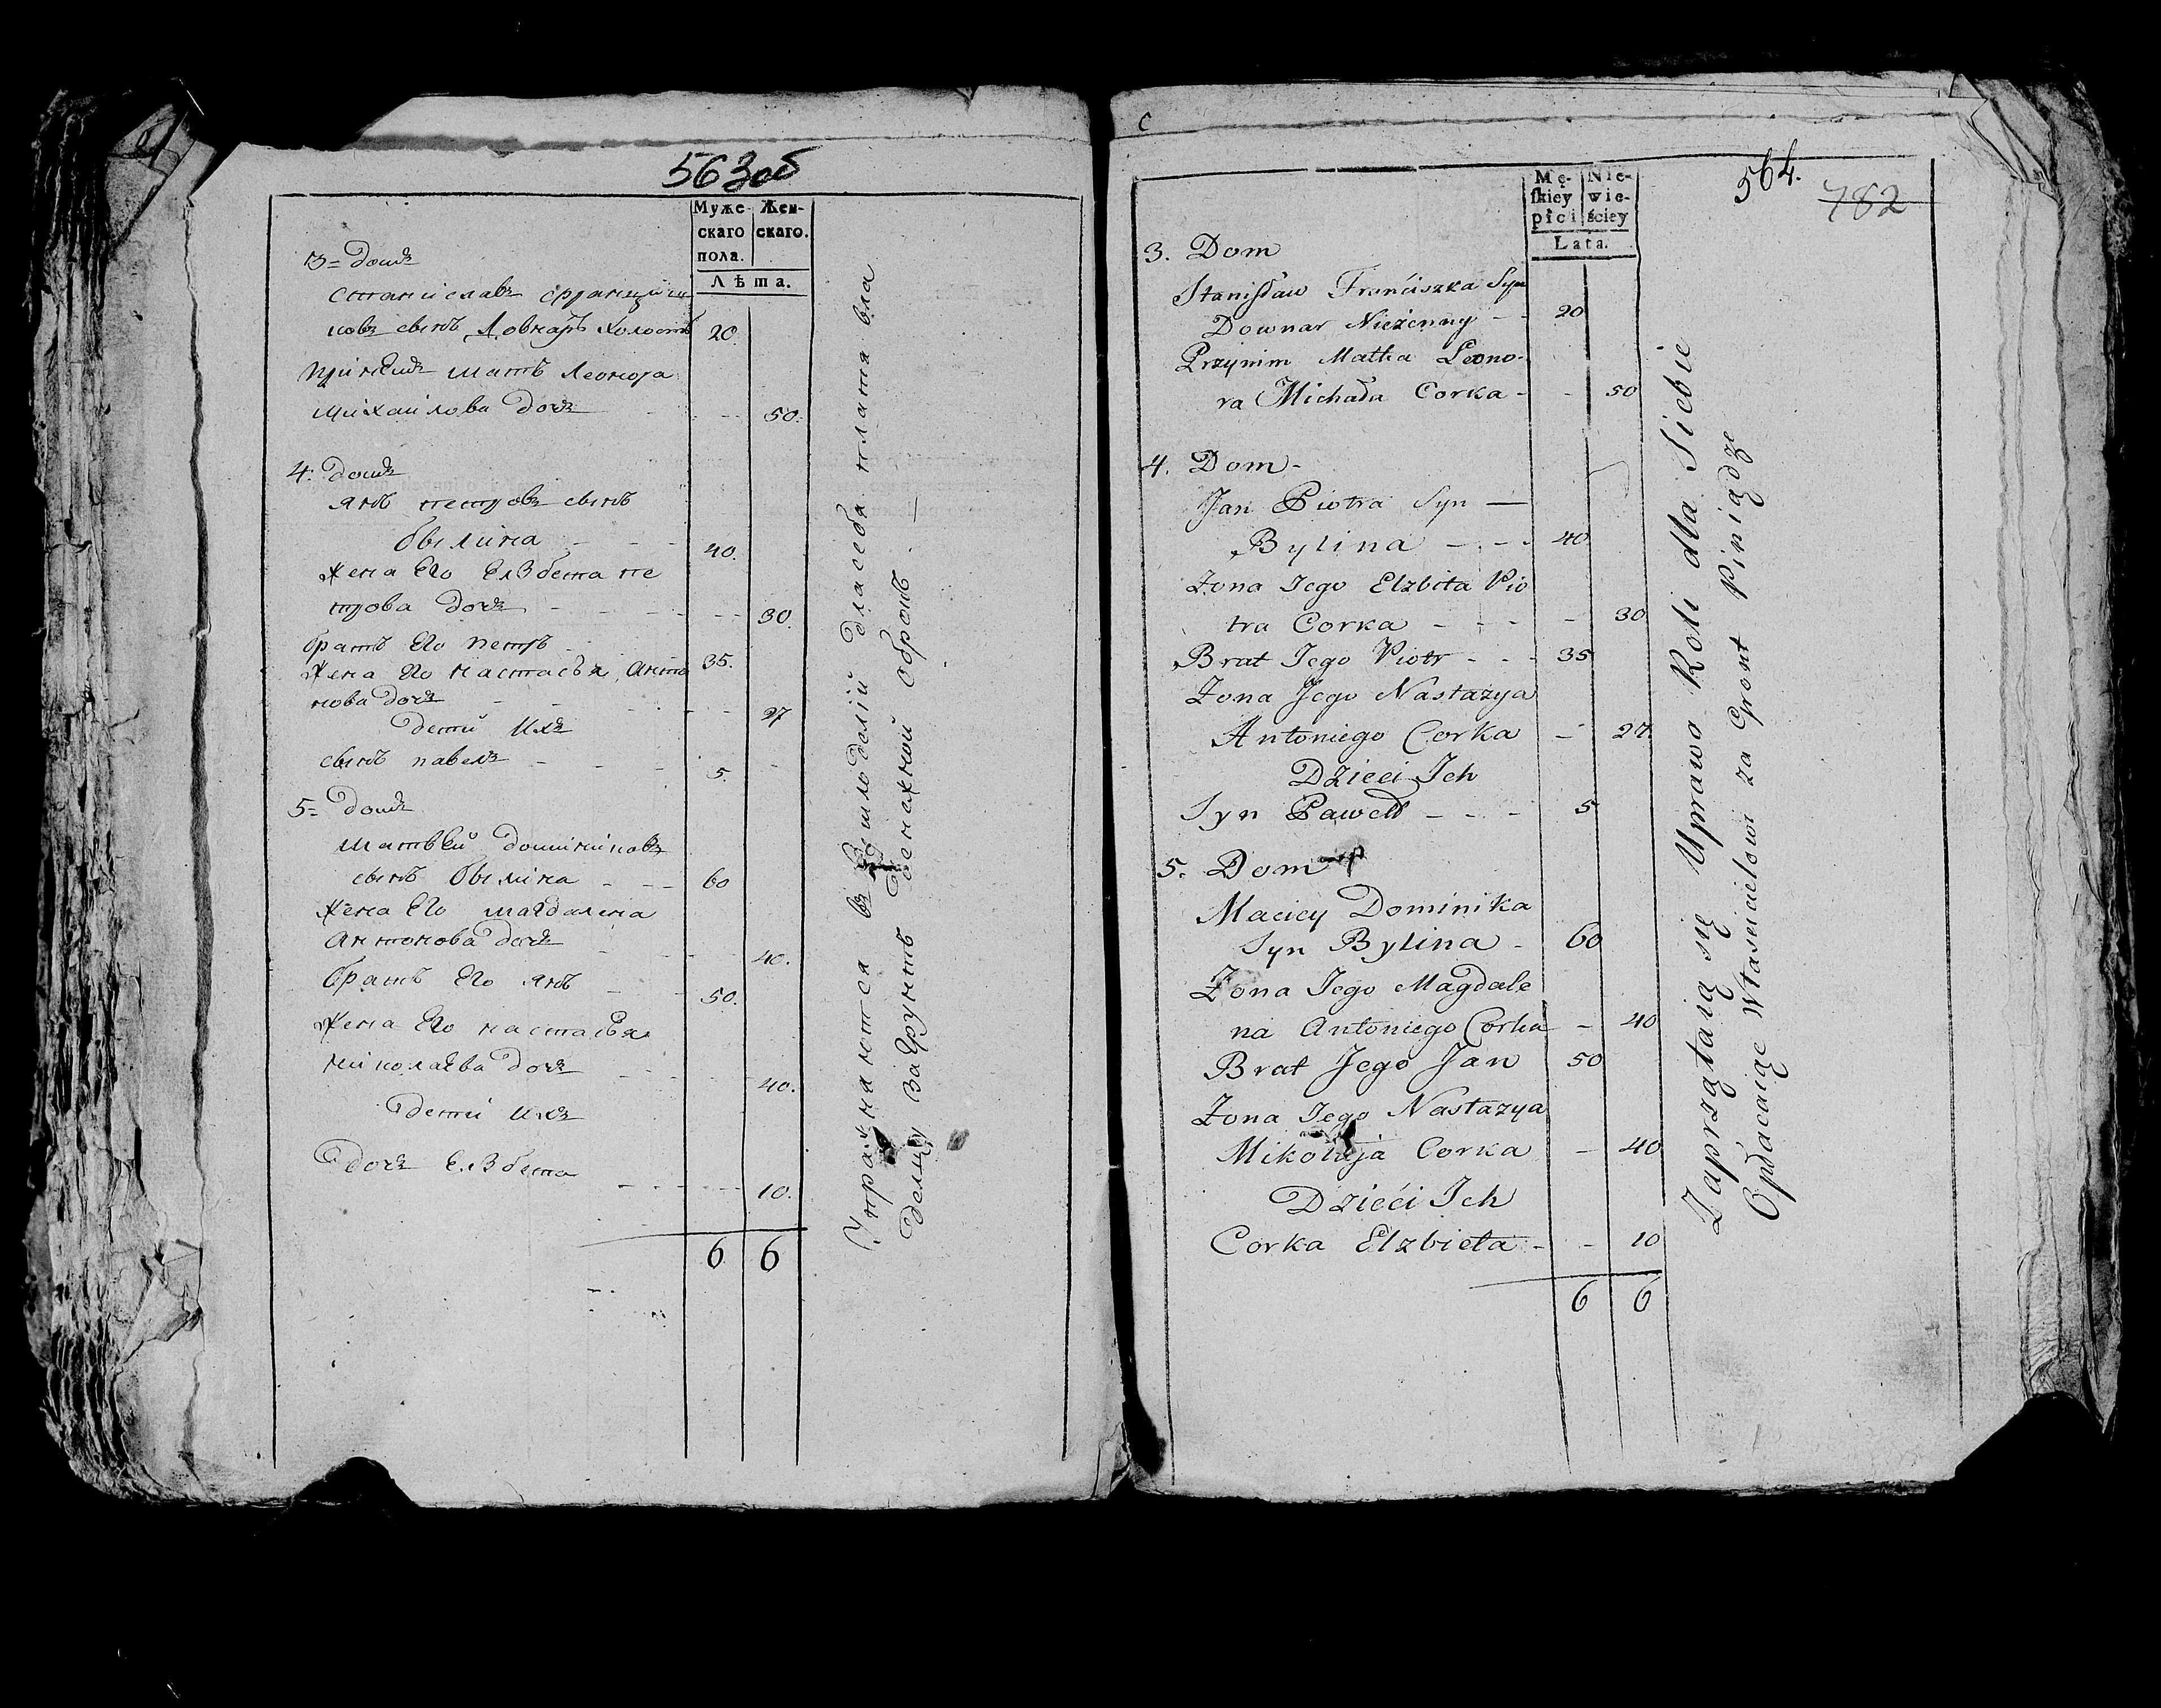 563об
Муже-
скаго
пола.
Жен-
скаго.
Лѣта.
3= домъ
Станиславъ Францыш
ковъ сынъ Довнаръ холостъ 20.
При немъ мать Леонора
Михайлова дочь - - - 50.
4. домъ
Янъ Петровъ сынъ
Былина - - - 40.
Жена Его Елзбета Пе
трова дочь - - - 30.
братъ Его Петръ - 35.
Жена Его Настасья Анто
нова дочь - - - 27
Дети Ихъ
сынъ Павелъ - - - 5.
5= домъ
Матвей Доминиковъ
сынъ Былина - - - 60
Жена Его Магдалена
Антонова дочь - - - 40.
братъ Его Янъ - - 50.
Жена Его Настасья
Николаева дочь - - - 40.
Дети Ихъ
дочь Елзбета - - - 10.
6 6
Упражняются въ Земледелии для себя платя вла
дельцу за грунтъ денежной оброкъ. —
с
564.
782
Mę-
skiey
płci
Nie-
wie-
ściey
Lata.
3. Dom
Stanisław Franciszka Syn
Downar Nieżenny - - 20
Przynim Matka Leono-
ra Michała Corka - - 50
4. Dom -
Jan Piotra Syn —
Bylina - - - 40
Zona Jego Elzbita Pio
tra Corka - - - - 30
Brat Jego Piotr - - - 35
Zona Jego Nastazya
Antoniego Corka - 27
Dzieci Ich
Syn Paweł - - - 5
5. Dom
Maciey Dominika
Syn Bylina - 60
Zona Jego Magdale
na Antoniego Corka - 40
Brat Jego Jan 50
Zona Jego Nastazya
Mikołaja Corka - 40
Dzieći Ich
Corka Elzbieta - - 10
6 6
Zaprzątaią się Uprawą Roli dla Siebie
Opłacaiąc Właścicielowi za Gront Piniądze